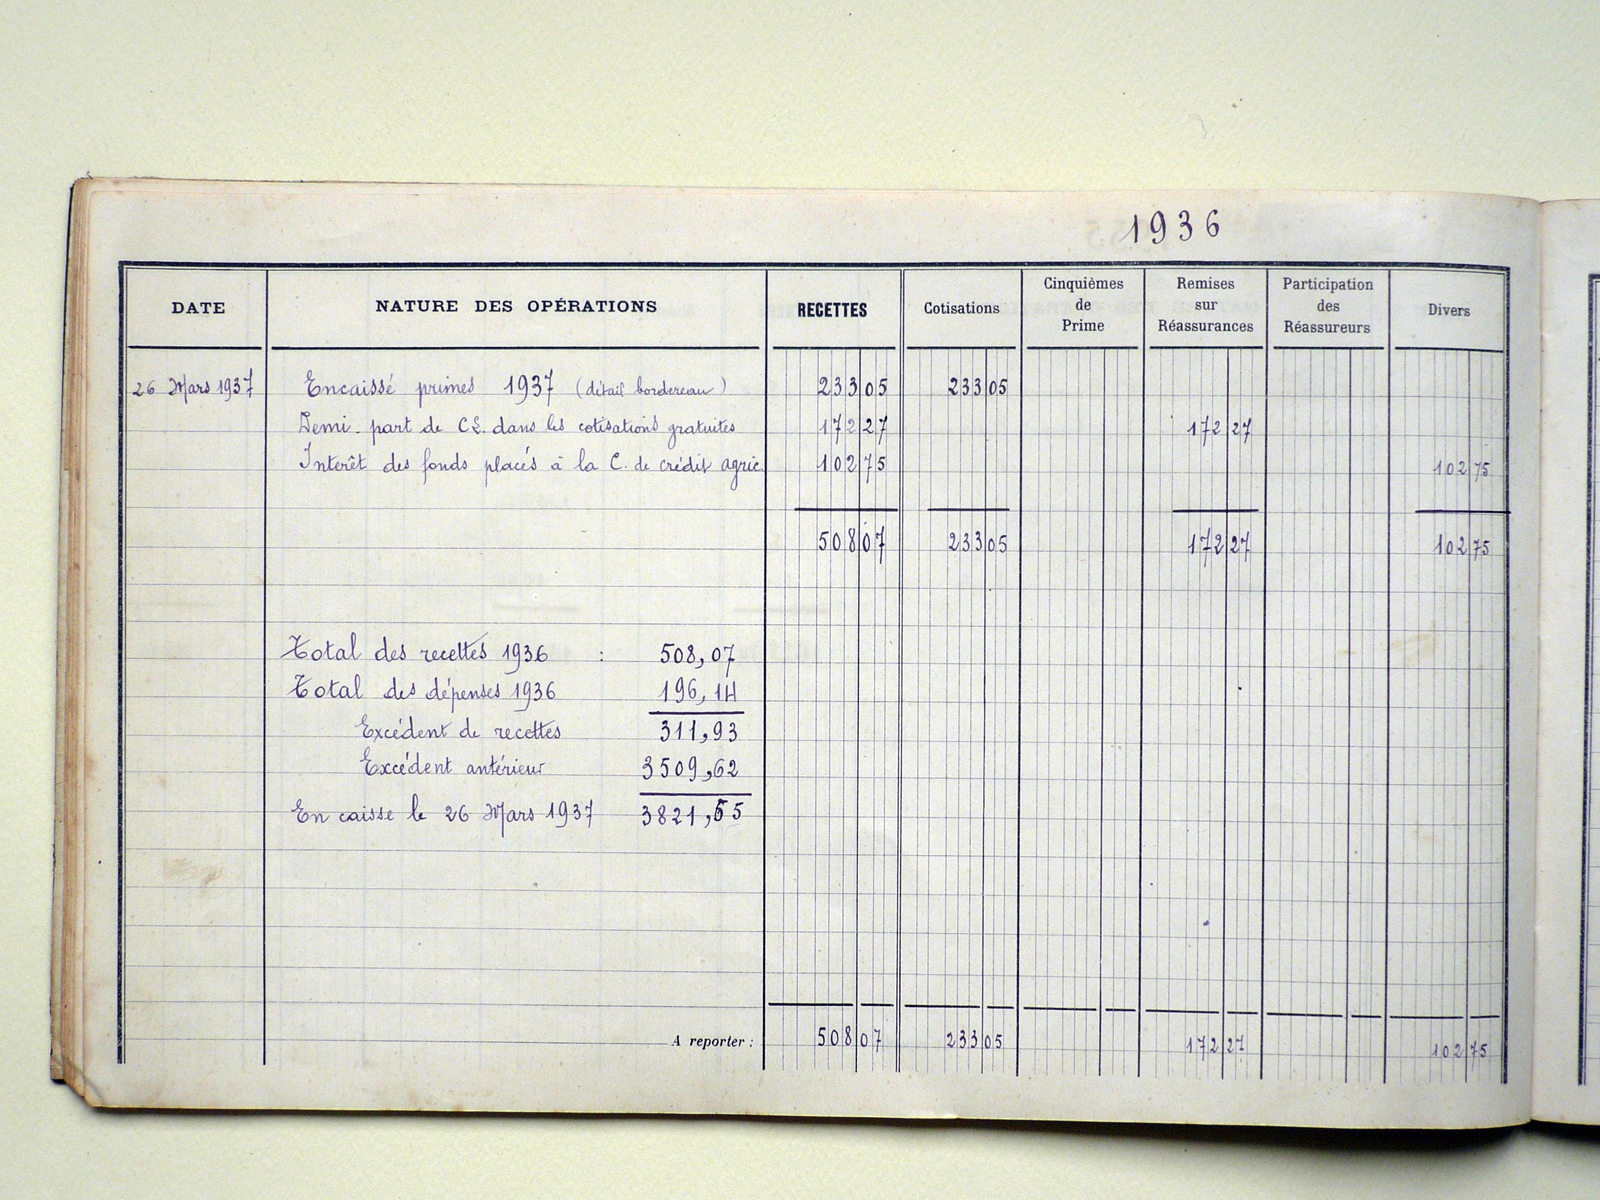 1936
DATE NATURE DES OPÉRATIONS RECETTES Cotisations Cinquièmes de Prime Remises sur Réassurances Participation des Réassureurs Divers
26 Mars 1937 Encaissé primes 1937 (détail bordereau) 233 05 233 05
Demi-part de C. dans les cotisations gratuites 172 27 172 27
Interêt des fonds placés à la C. de crédit agric 102 75 102 75
508 07 233 05 172 27 102 75
Total des recettes 1936 : 508,07
Total des dépenses 1936 196,14
Excédent de recettes 311,93
Excédent antérieur 3509,62
En caisse le 26 Mars 1937 3821,55
A reporter : 508 07 233 05 172 27 102 75